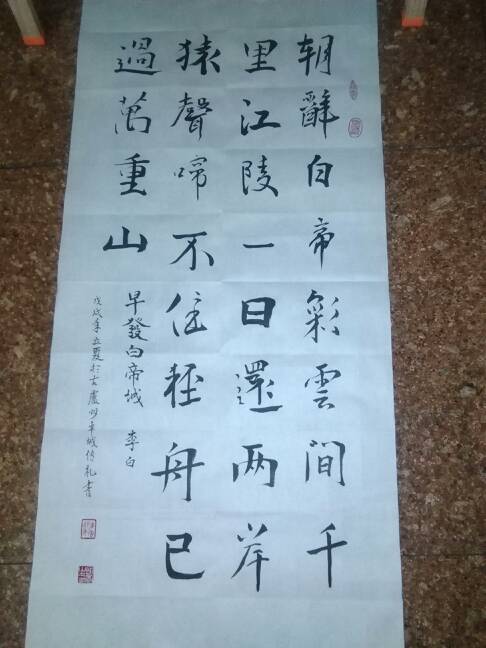 朝辭白帝彩雲間千
里江陵一日還两岸
猿聲啼不住輕舟已
過萬重山
早發白帝城 李白
戊戌年立夏於古廬州